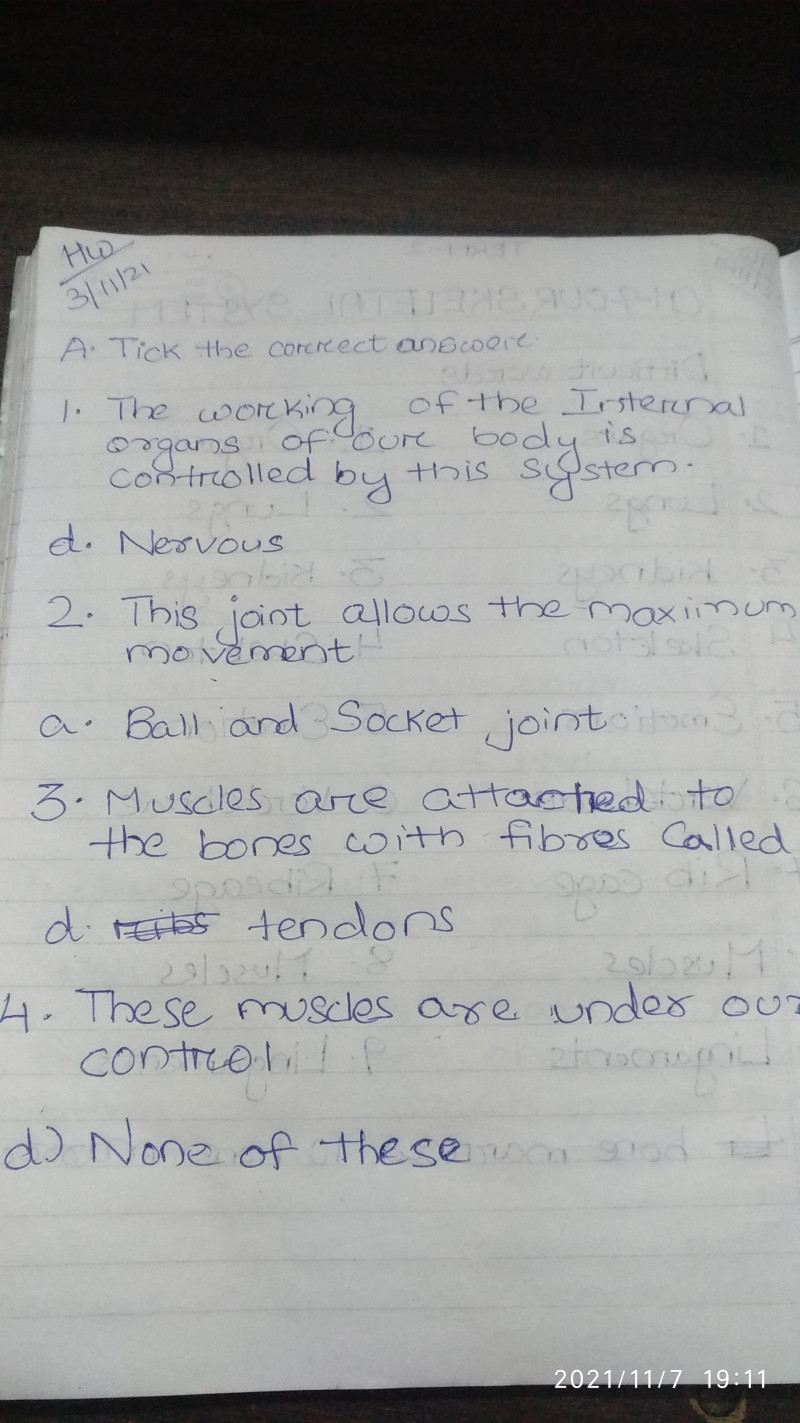 HW
3/11/21
A. Tick the correct answer.
1. The working of the Internal
organs of our body is
controlled by this system.
d. Nervous
2. This joint allows the maximum
movement
a. Ball and Socket joint
3. Muscles are attached to
the bones with fibres Called
d. tendons
4. These muscles are under our
control
d) None of these
2021/11/7 19:11